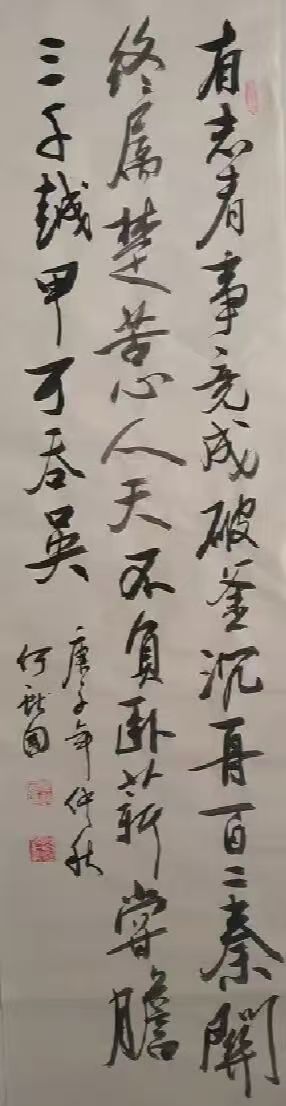 有志者事竟成破釜沉舟百二秦關
終属楚苦心人天不負卧薪嘗膽
三千越甲可吞吴
庚子年仲秋
何献国